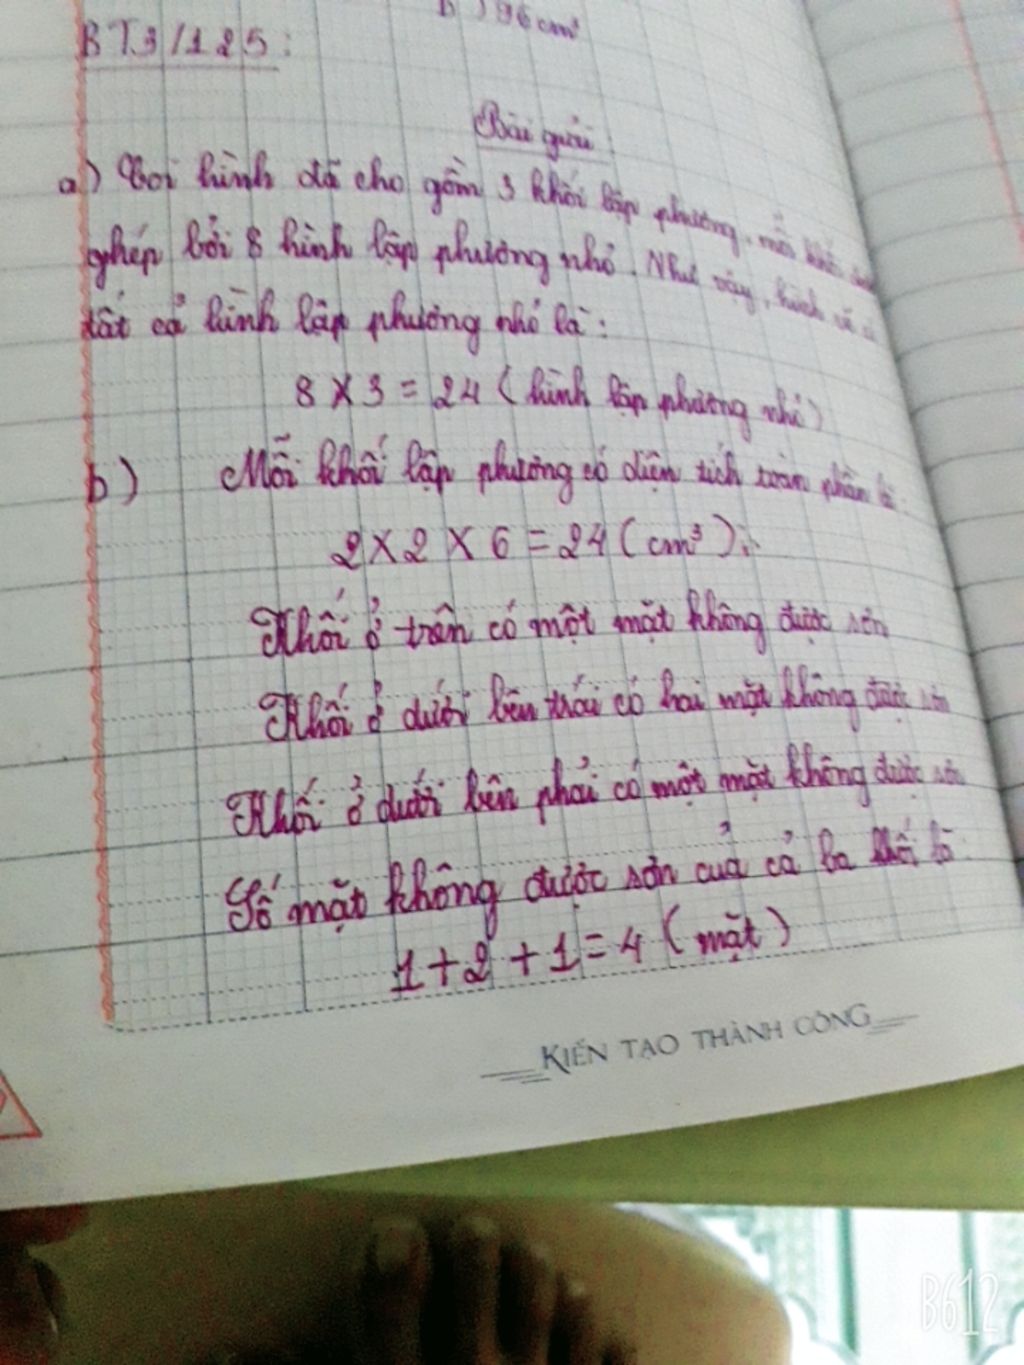 B) 96 cm³
BT3/125:
Bài giải
a) Coi hình đã cho gồm 3 khối lập phương, mỗi khối
ghép bởi 8 hình lập phương nhỏ. Như vậy, hình vẽ
tất cả hình lập phương nhỏ là:
8 X 3 = 24 (hình lập phương nhỏ)
b) Mỗi khối lập phương có diện tích toàn phần là:
2 X 2 X 6 = 24 (cm³).
Khối ở trên có một mặt không được sơn
Khối ở dưới bên trái có hai mặt không được sơn
Khối ở dưới bên phải có một mặt không được sơn
Số mặt không được sơn của cả ba khối là:
1 + 2 + 1 = 4 (mặt)
KIẾN TẠO THÀNH CÔNG
B612